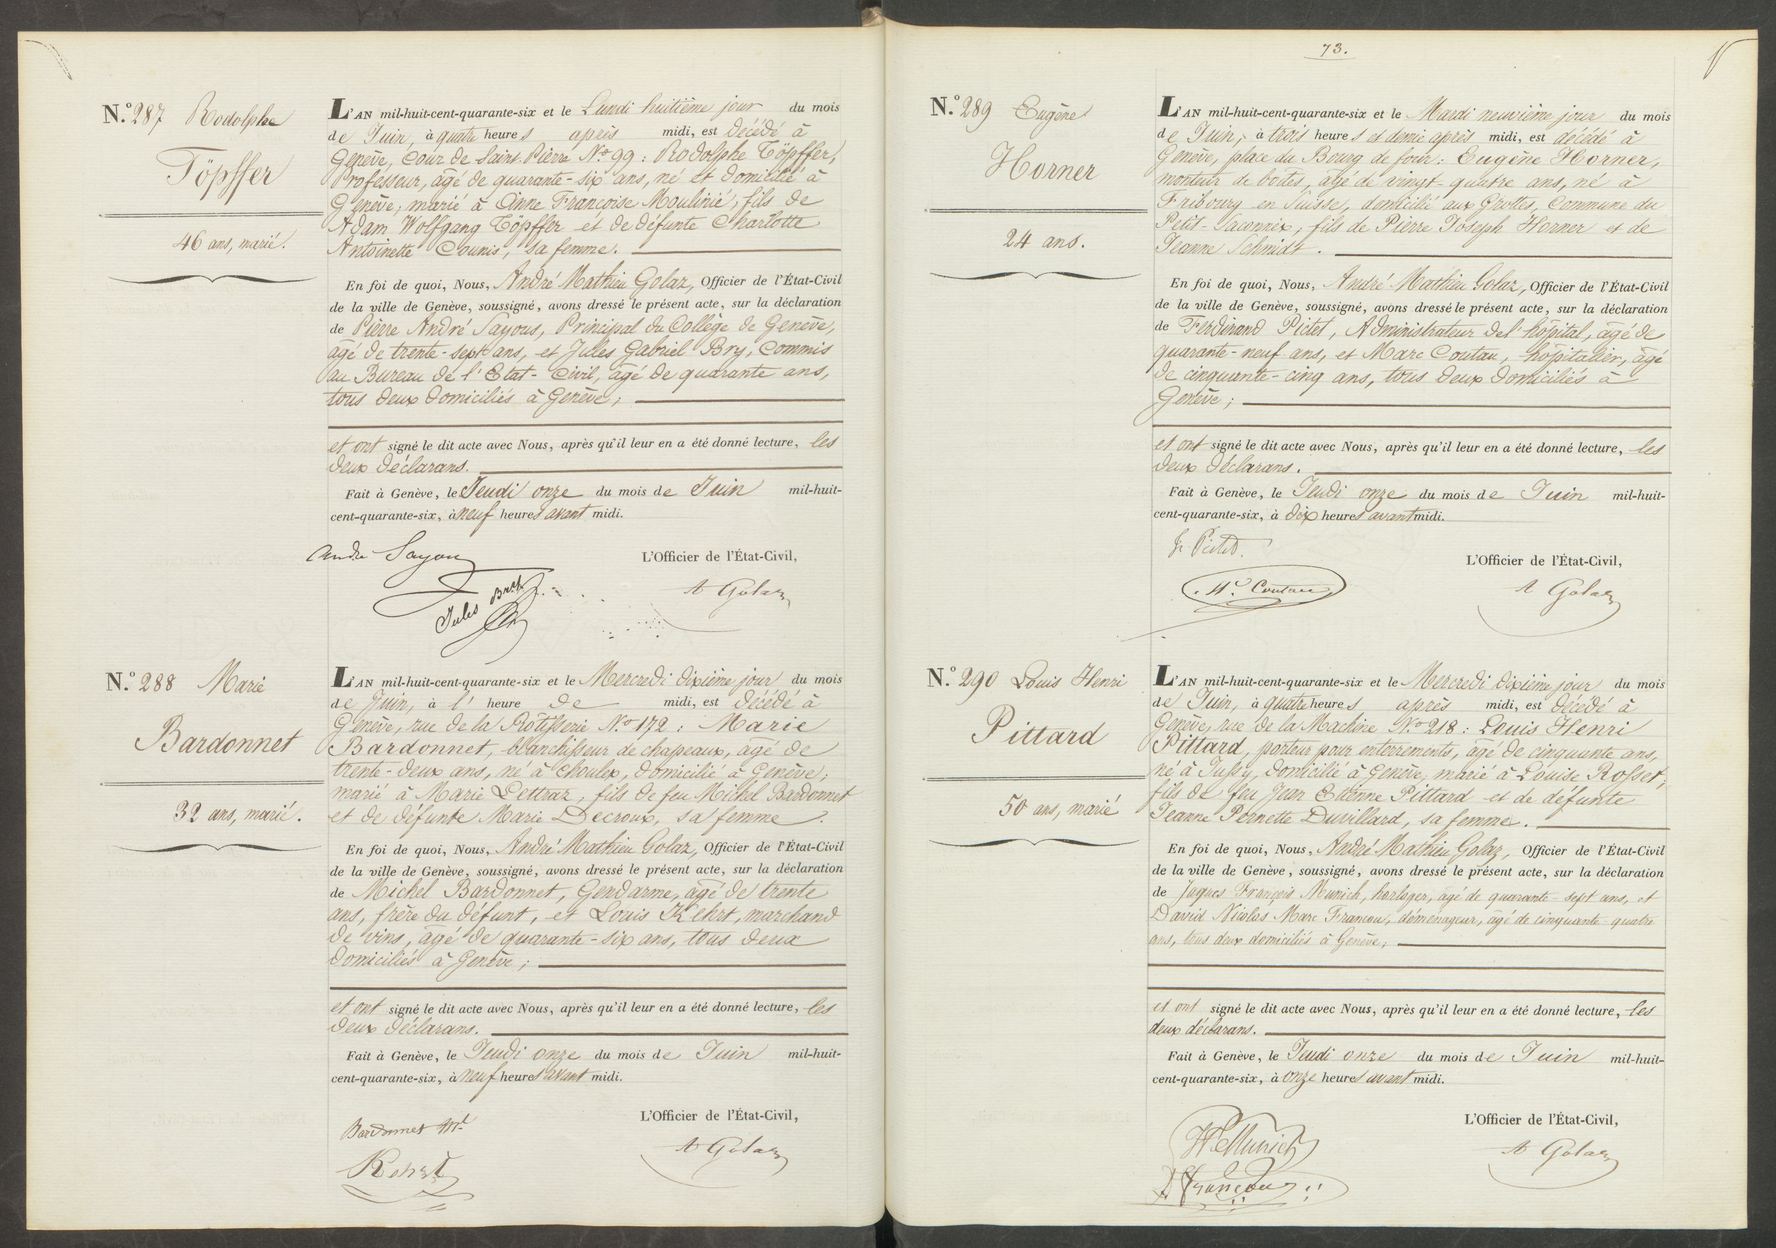 N.º 287 Rodolphe
Töpffer
46 ans, marié.
L'AN mil-huit-cent-quarante-six et le Lundi huitième jour du mois
de Juin, à quatre heures après midi, est décédé à
Genève, Cour de Saint Pierre Nº 99 : Rodolphe Töpffer,
Professeur, âgé de quarante-six ans, né et domicilié à
Genève, marié à Anne Françoise Moulinié, fils de
Adam Wolfgang Töpffer et de défunte Charlotte
Antoinette Counis, sa femme.
En foi de quoi, Nous, André Mathieu Golaz, Officier de l'État-Civil
de la ville de Genève, soussigné, avons dressé le présent acte, sur la déclaration
de Pierre André Sayous, Principal du Collège de Genève,
âgé de trente-sept ans, et Jules Gabriel Bry, Commis
au Bureau de l'Etat-Civil, âgé de quarante ans,
tous deux domiciliés à Genève ;
et ont signé le dit acte avec Nous, après qu'il leur en a été donné lecture, les
deux déclarans.
Fait à Genève, le Jeudi onze du mois de Juin mil-huit-
cent-quarante-six, à neuf heures avant midi.
André Sayous
L'Officier de l'État-Civil,
Jules Bry
A Golaz
N.º 288 Marie
Bardonnet
32 ans, marié.
L'AN mil-huit-cent-quarante-six et le Mercredi dixième jour du mois
de Juin, à l' heure de midi, est décédé à
Genève, rue de la Rotisserie Nº 172 : Marie
Bardonnet, blanchisseur de chapeaux, âgé de
trente-deux ans, né à Choulex, domicilié à Genève ;
marié à Marie Lettraz, fils de feu Michel Bardonnet
et de défunte Marie Decroux, sa femme.
En foi de quoi, Nous, André Mathieu Golaz, Officier de l'État-Civil
de la ville de Genève, soussigné, avons dressé le présent acte, sur la déclaration
de Michel Bardonnet, Gendarme, âgé de trente
ans, frère du défunt, et Louis Kehrt, marchand
de vins, âgé de quarante-six ans, tous deux
domiciliés à Genève ;
et ont signé le dit acte avec Nous, après qu'il leur en a été donné lecture, les
deux déclarans.
Fait à Genève, le Jeudi onze du mois de Juin mil-huit-
cent-quarante-six, à neuf heures avant midi.
Bardonnet Mel
L'Officier de l'État-Civil,
Kehrt
A Golaz
73.
N.º 289 Eugène
Horner
24 ans.
L'AN mil-huit-cent-quarante-six et le Mardi neuvième jour du mois
de Juin, à trois heures et demie après midi, est décédé à
Genève, place du Bourg de four : Eugène Horner,
monteur de boîtes, âgé de vingt-quatre ans, né à
Fribourg en Suisse, domicilié aux Grottes, Commune du
Petit-Saconnex, fils de Pierre Joseph Horner et de
Jeanne Schmidt.
En foi de quoi, Nous, André Mathieu Golaz, Officier de l'État-Civil
de la ville de Genève, soussigné, avons dressé le présent acte, sur la déclaration
de Ferdinand Pictet, Administrateur de l'hôpital, âgé de
quarante-neuf ans, et Marc Coutau, hôpitalier, âgé
de cinquante-cinq ans, tous deux domiciliés à
Genève ;
et ont signé le dit acte avec Nous, après qu'il leur en a été donné lecture, les
deux déclarans.
Fait à Genève, le Jeudi onze du mois de Juin mil-huit-
cent-quarante-six, à dix heures avant midi.
F. Pictet.
L'Officier de l'État-Civil,
Mc Coutau
A Golaz
N.º 290 Louis Henri
Pittard
50 ans, marié
L'AN mil-huit-cent-quarante-six et le Mercredi dixième jour du mois
de Juin, à quatre heures après midi, est décédé à
Genève, rue de la Machine Nº 218 : Louis Henri
Pittard, porteur pour enterrements, âgé de cinquante ans,
né à Jussy, domicilié à Genève, marié à Louise Rosset ;
fils de feu Jean Etienne Pittard et de défunte
Jeanne Pernette Duvillard, sa femme.
En foi de quoi, Nous, André Mathieu Golaz, Officier de l'État-Civil
de la ville de Genève, soussigné, avons dressé le présent acte, sur la déclaration
de Jaques François Munich, horloger, âgé de quarante-sept ans, et
David Nicolas Marc Francou, déménageur, âgé de cinquante-quatre
ans, tous deux domiciliés à Genève,
et ont signé le dit acte avec Nous, après qu'il leur en a été donné lecture, les
deux déclarans.
Fait à Genève, le Jeudi onze du mois de Juin mil-huit-
cent-quarante-six, à onze heures avant midi.
L'Officier de l'État-Civil,
Munich
A Golaz
D Francou